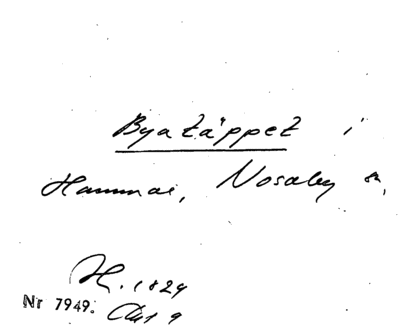 Byatäppet i
Hammar, Nosaby sn,
H. 1824
Nr 7949.